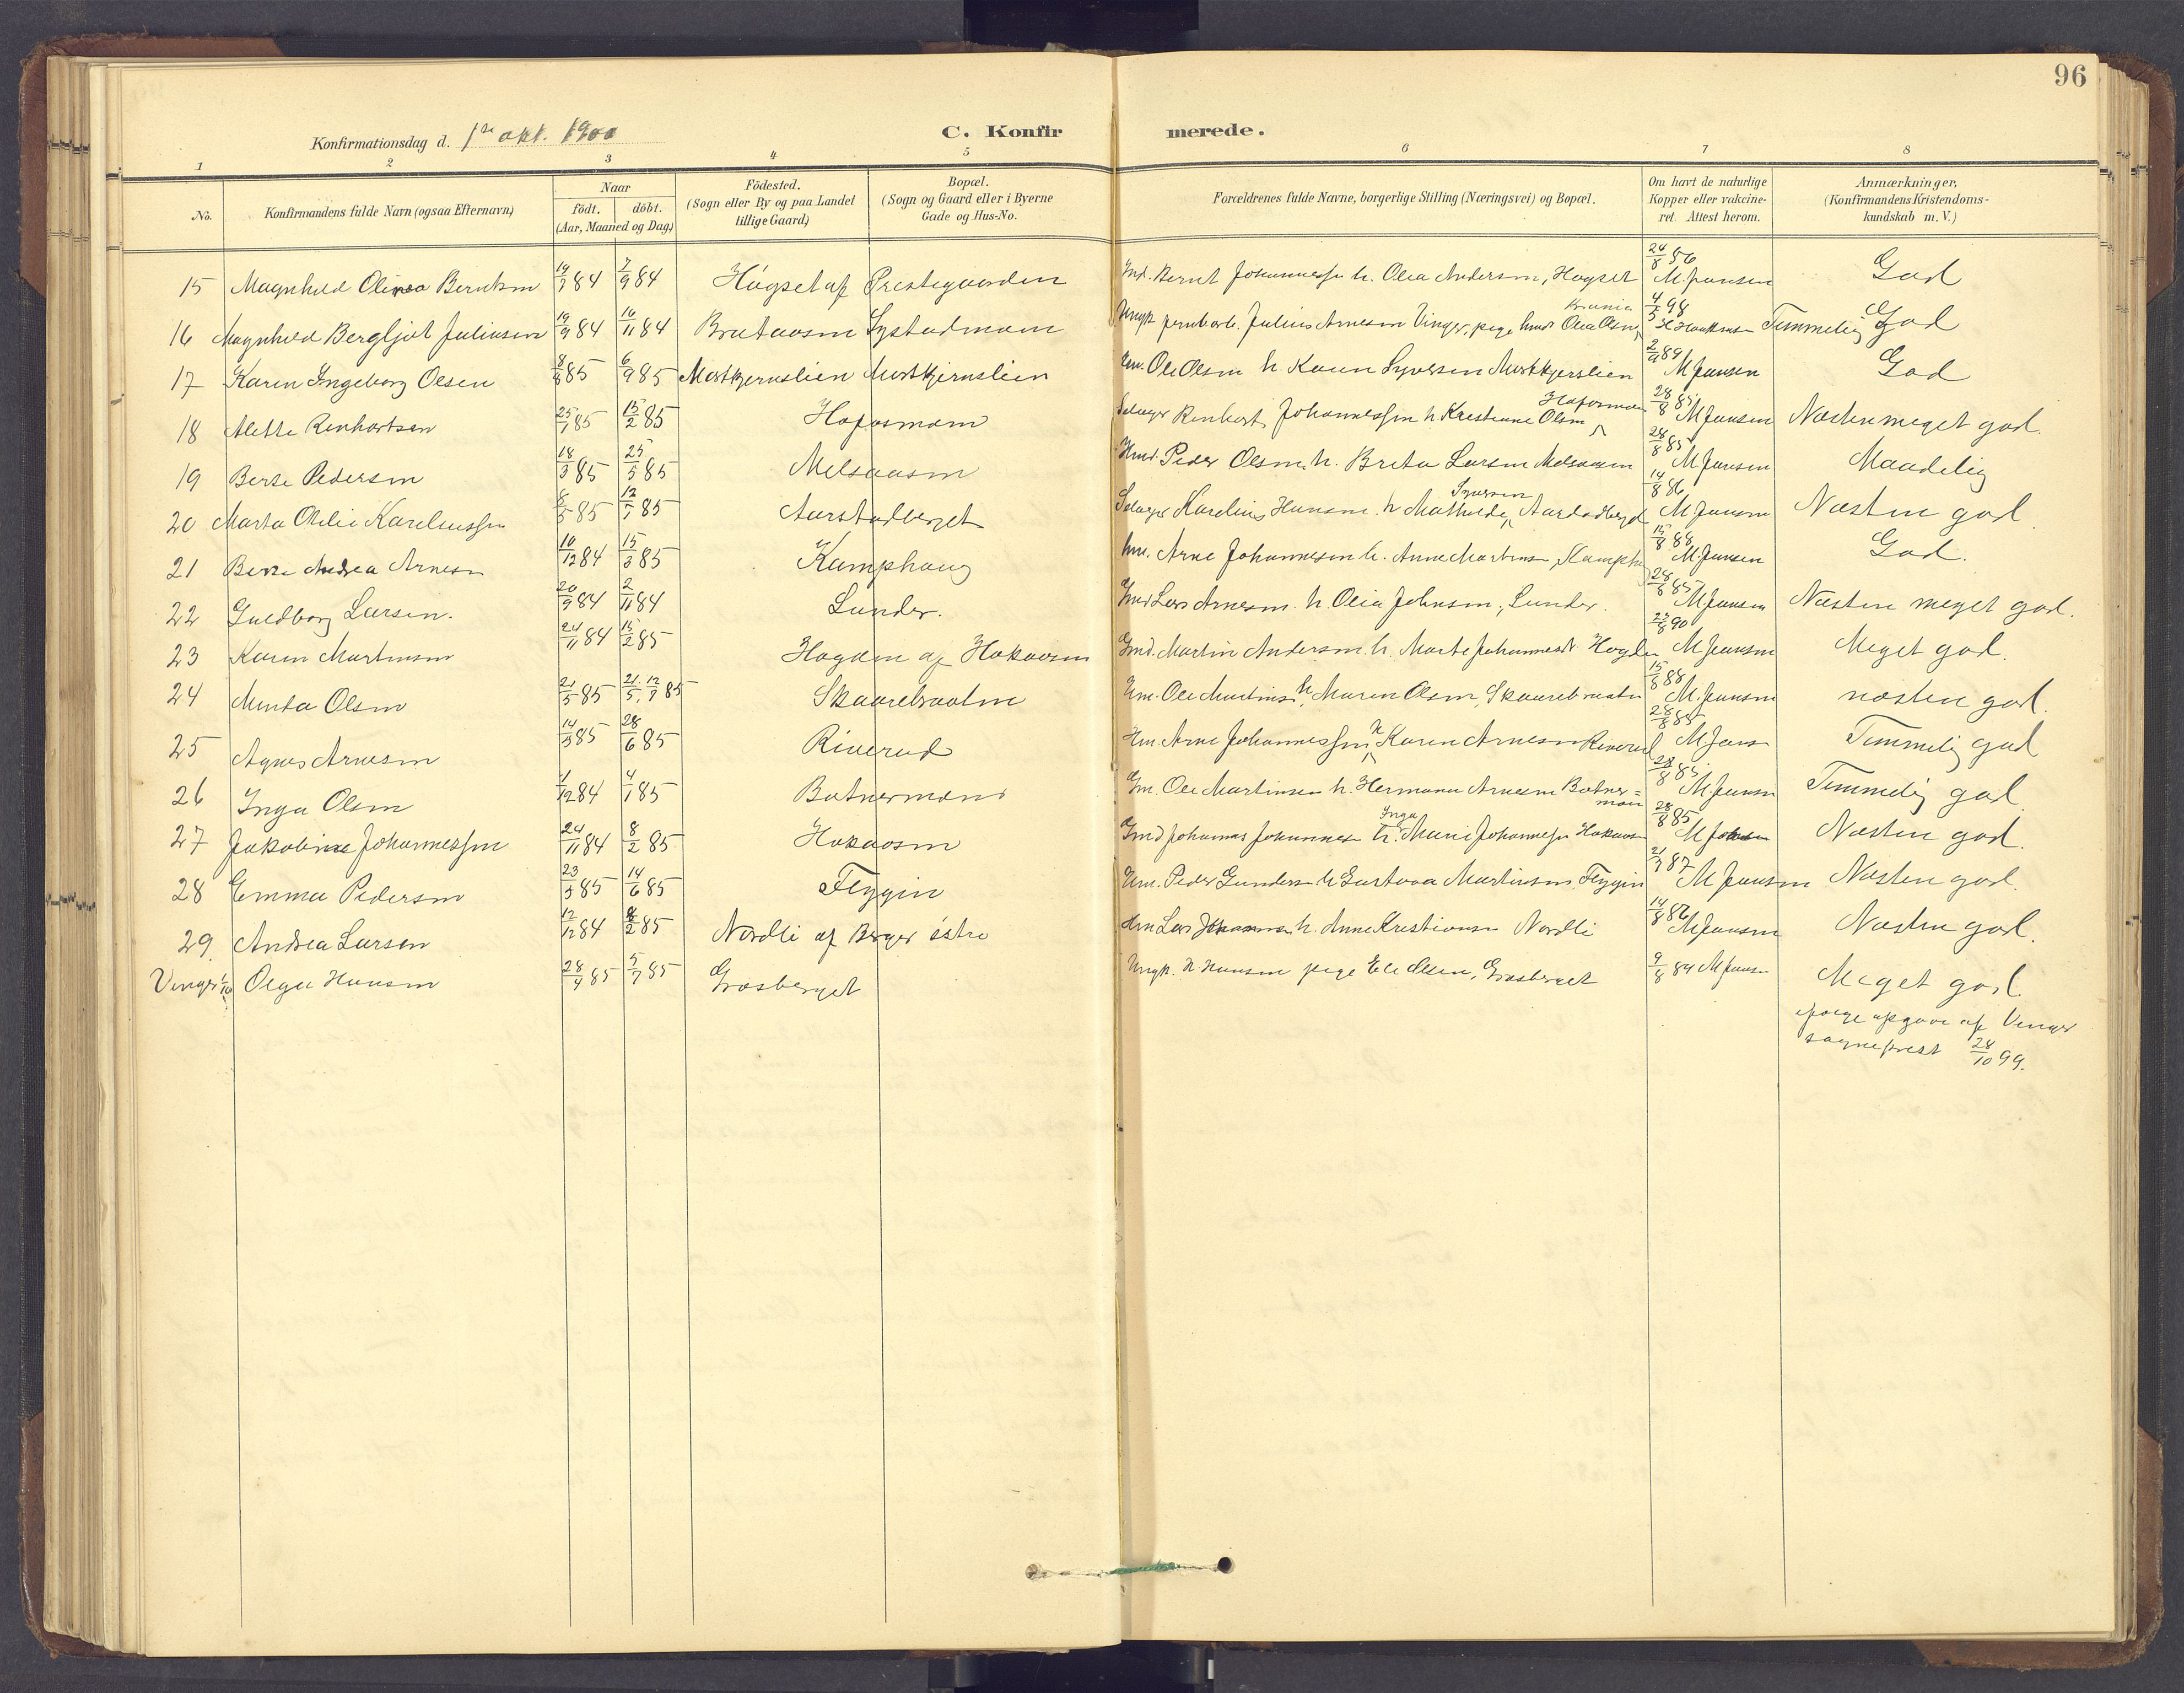 96
Konfirmationsdag d. 1ste okt. 1900
C. Konfirmerede.
1 2 3 4 5 6 7 8
No. Konfirmandens fulde Navn (ogsaa Efternavn) Naar født. døbt. (Aar, Maaned og Dag) Födested. (Sogn eller By og paa Landet tillige Gaard) Bopæl. (Sogn og Gaard eller i Byerne Gade og Hus-No. Forældrenes fulde Navne, borgerlige Stilling (Næringsvei) og Bopæl. Om havt de naturlige Kopper eller vakcineret. Attest herom. Anmærkninger. (Konfirmandens Kristendomskundskab m. V.)
15 Magnhild Olinea Berntsen 19/7 84 7/9 84 Högset af Prestegaarden Ind. Bernt Johannessen h. Olea Andersen, Högset 24/8 86 M. Jansen God
16 Magnhild Bergljot Juliussen 19/9 84 16/11 84 Brataasen Systadmoen Ungk. jernbarb. Julius Arnesen Vinger, pige Olea Olsen, Krania 4/5 98 Temmelig God
17 Karen Ingeborg Olsen 8/8 85 6/9 85 Mostkjernslien Mostkjernslien Hm. Ole Olsen h Karen Syversen Mostkjernslien 2/9 89 M Jansen God
18 Alette Renhartsen 25/1 85 15/2 85 Hofosmoen Selveier Renhart Johannessen h Krestiane Olsen Hofosmoen 28/8 85 M Jansen Næsten meget god.
19 Berte Pedersen 18/3 85 25/5 85 Melsaasen Hmd. Peder Olsen h. Breta Larsen Melsaasen 28/8 85 M Jansen Maadelig
20 Marta Otilie Kareliussen 8/5 85 12/7 85 Aarstadberget Selveier Karelius Hansen h Mathilde Syversen Aarstadberget 14/8 86 M Jansen Næsten god.
21 Berte Andrea Arnesen 16/12 84 15/3 85 Kamphaug hm. Arne Johannesen h. Anne Martinsen, Kamph. 15/8 88 M. Jansen God.
22 Guldborg Larsen. 20/9 84 2/11 84 Lunder. Gmd Lars Arnesen h. Olea Johnsen, Lunder. 28/8 85 M Jansen Næsten meget god.
23 Karen Martinsen 24/11 84 15/2 85 Hagden af Hokaasen Gmd. Martin Andersen h. Marte Johannesdt. Hogden 23/8 90 M Jansen Meget god.
24 Minda Olsen 21/5 85 21/5, 12/7 85 Skaarebraaten Hm. Ole Martinsen h, Maren Olsen, Skaarebraaten 15/8 88 M. Jansen næsten god.
25 Agnes Arnesen 14/5 85 28/6 85 Riverud Hm. Arne Johannessen h Karen Arnesen Riverud 28/8 85 M Jans Temmelig god
26 Inga Olsen 1/12 84 4/1 85 Botnermoen Gm. Ole Martinsen h. Hermana Arnesen Botnermoen 28/8 85 M. Jansen Temmelig god
27 Jakobine Johannessen 24/11 84 8/2 85 Hokaasen Gmd Johannes Johannesen h. Inga Marie Johannesen Hokaasen 28/8 85 M Jansen Næsten god.
28 Emma Pedersen 23/5 85 14/6 85 Flygin Hm. Peder Gundersen h Gustava Martinsen Flygin 21/7 87 M Jansen Næsten god.
29. Andrea Larsen 12/12 84 8/2 85 Nordli af Berger östre Hm Lars Johannesen h. Anne Kristiansen Nordli 14/8 86 M Jansen Næsten god.
Vinger Olga Hansen 28/4 85 5/7 85 Grasberget Ungk. H Hansen pige Ele Olsen, Grasberget 9/8 89 M Jansen Meget god
ifølge opgave af Vinger
sogneprest 28/10 99.